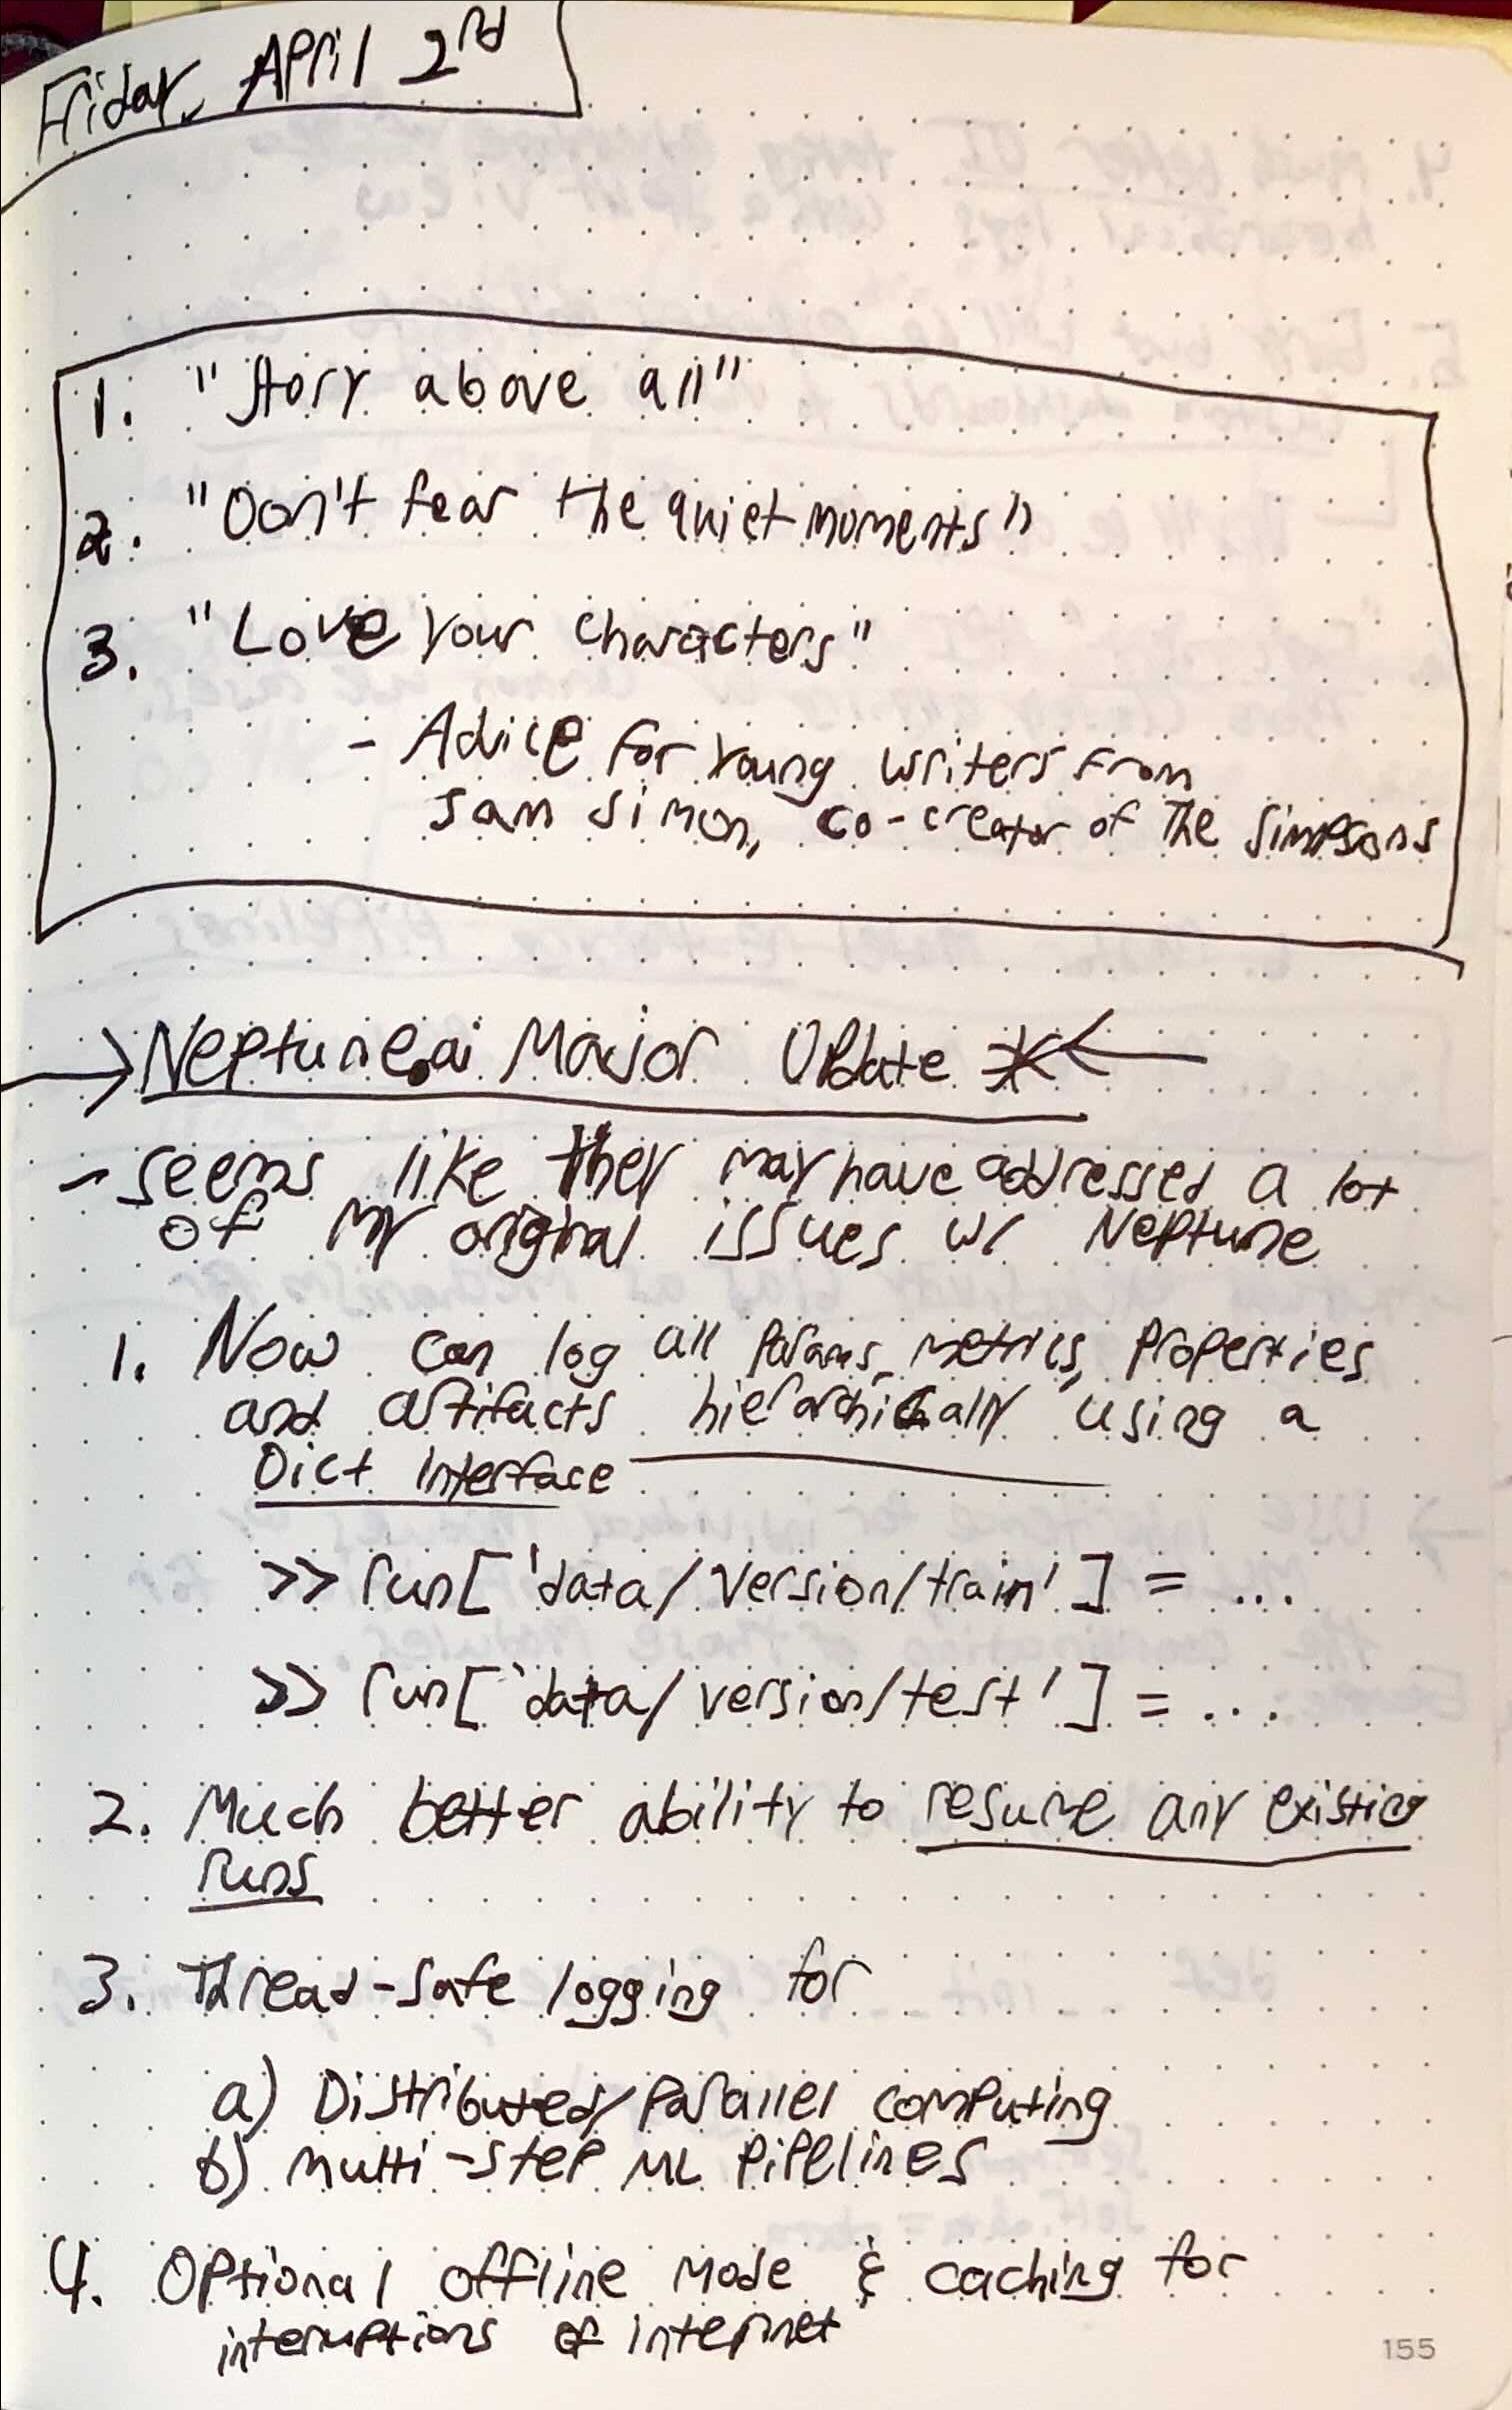 Friday, April 2nd
1. "Story above all"
2. "Don't fear the quiet moments"
3. "Love your characters"
- Advice for young writers from
Sam Simon, co-creator of The Simpsons
→ Neptune.ai Major Update * ←
- seems like they may have addressed a lot
of my original issues w/ Neptune
1. Now can log all params, metrics, properties
and artifacts hierarchically using a
Dict Interface
>> run['data/version/train'] = ...
>> run['data/version/test'] = ...
2. Much better ability to resume any existing
runs
3. Thread-safe logging for
a) Distributed/Parallel computing
b) Multi-step ML Pipelines
4. Optional offline mode & caching for
interruptions of internet
155